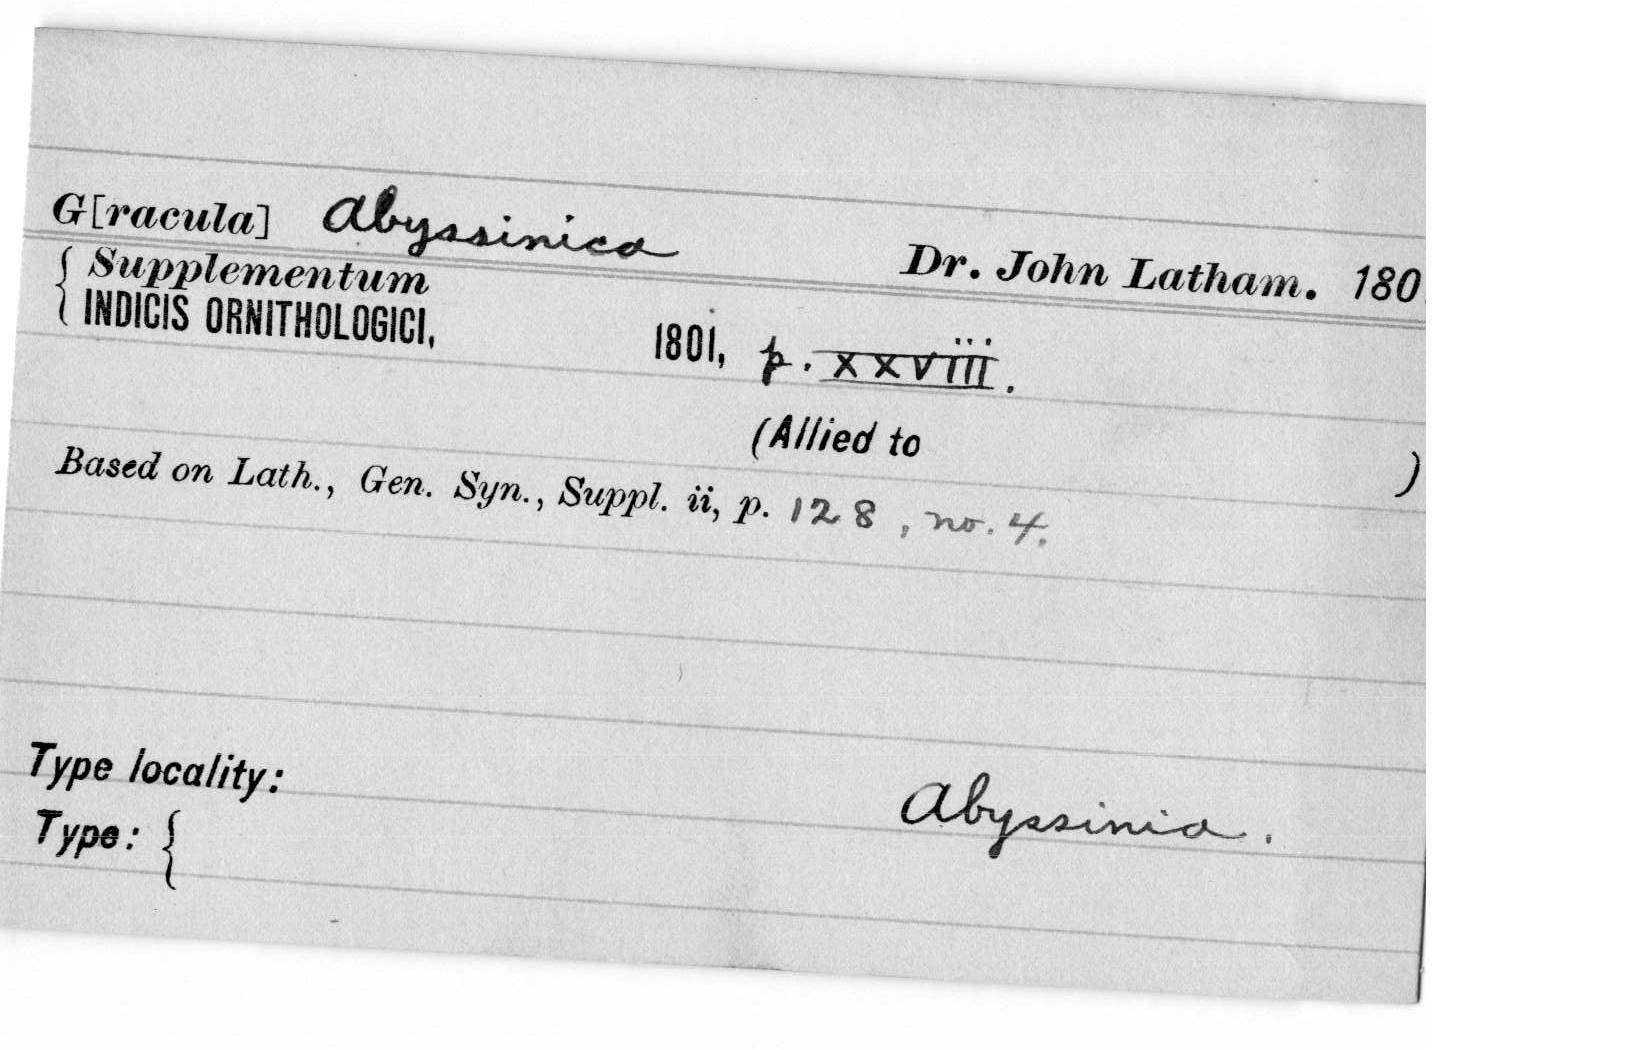 G[racula] Abyssinica
Dr. John Latham. 180
Supplementum
INDICIS ORNITHOLOGICI, 1801, p. XXVIII.
(Allied to )
Based on Lath., Gen. Syn., Suppl. ii, p. 128, no. 4.
Type locality: Abyssinia.
Type: